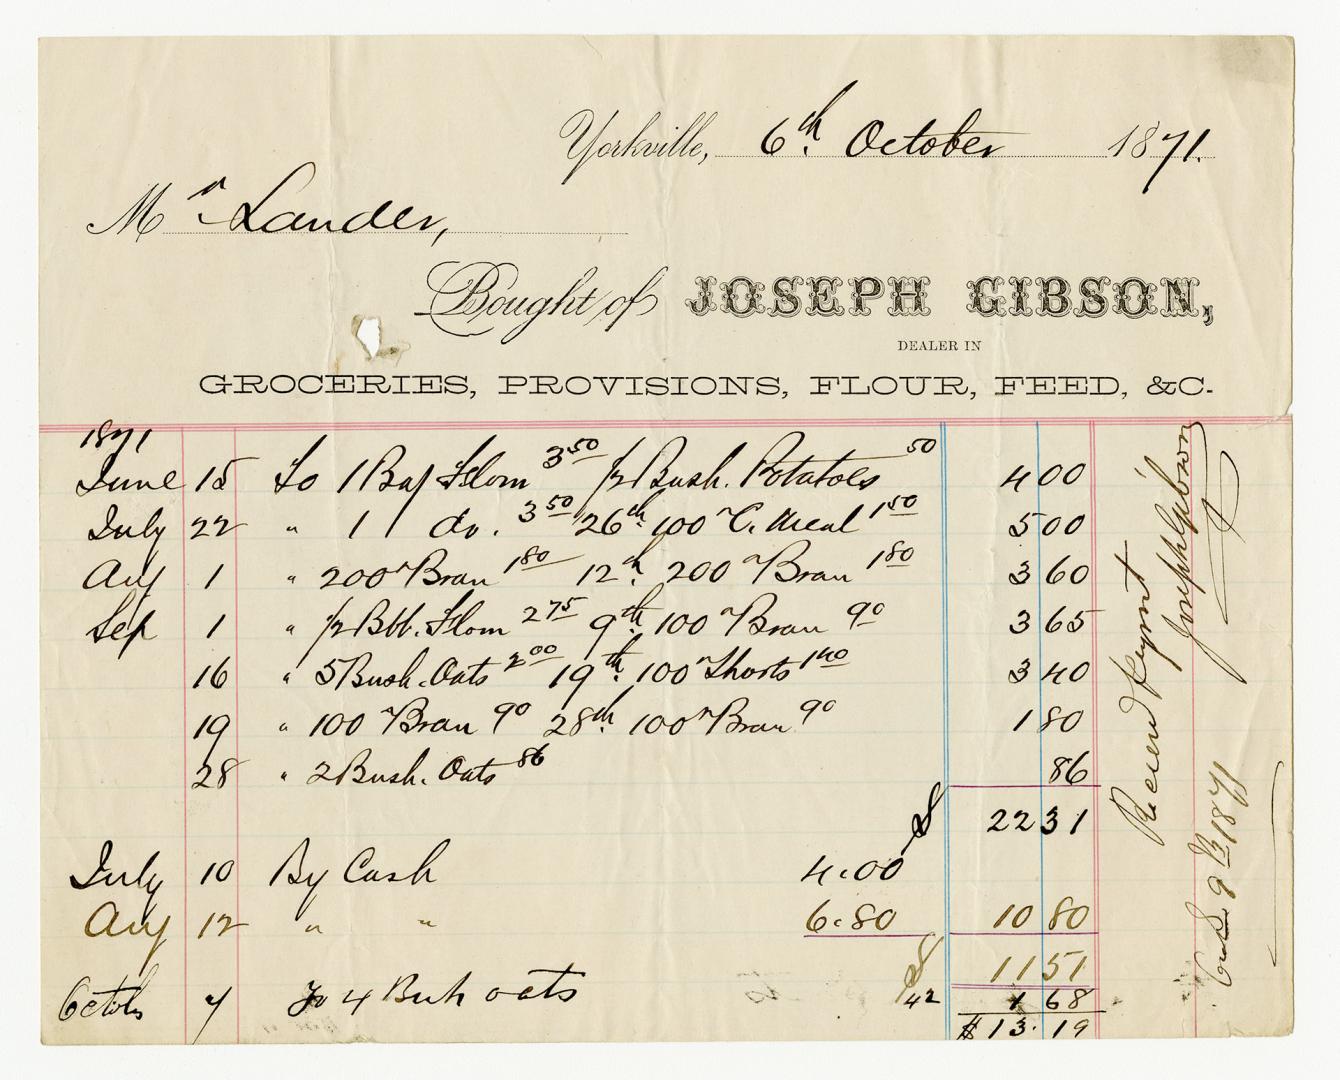 Yorkville, 6th. October 1871.
Mr. Lander,
Bought of JOSEPH GIBSON,
DEALER IN
GROCERIES, PROVISIONS, FLOUR, FEED, &C.
1871
June 15 To 1 Bag Flour 3 50 1/2 Bush. Potatoes 50 4 00
July 22 " 1 do. 3 50 26th. 100 " C. Meal 1 50 5 00
Aug 1 " 200 " Bran 1 80 12th. 200 " Bran 1 80 3 60
Sep 1 " 1/2 Bbl. Flour 2 75 9th. 100 " Bran 90 3 65
16 " 5 Bush. Oats 2 00 19th. 100 " Shorts 1 40 3 40
19 " 100 " Bran 90 28th. 100 " Bran 90 1 80
28 " 2 Bush. Oats 86 86
$ 22 31
July 10 By Cash 4.00
Aug 12 " " 6.80 10 80
$ 11 51
October 7 To 4 Bush oats 42 1 68
$13.19
Received Paymt
Joseph Gibson
Octob 9th 1871